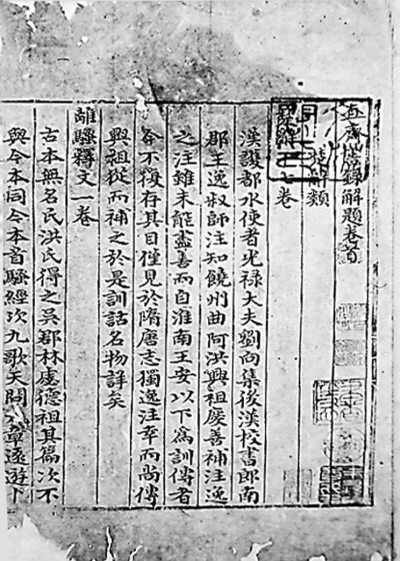 直齋書錄解題卷
辭類
七卷
漢護都水使者光禄大夫劉向集後漢校書郎南
郡王逸叔師注知饒州曲阿洪興祖慶善補注逸
之注雖未能盡善而自淮南王安以下爲訓傳者
今不復存其目僅見於隋唐志獨逸注幸而尚傳
興祖從而補之於是訓詁名物詳矣
離騷釋文一卷
古本無名氏洪氏得之吳郡林虙德祖其篇次不
與今本同今本首騷經次九歌天問九章遠遊卜